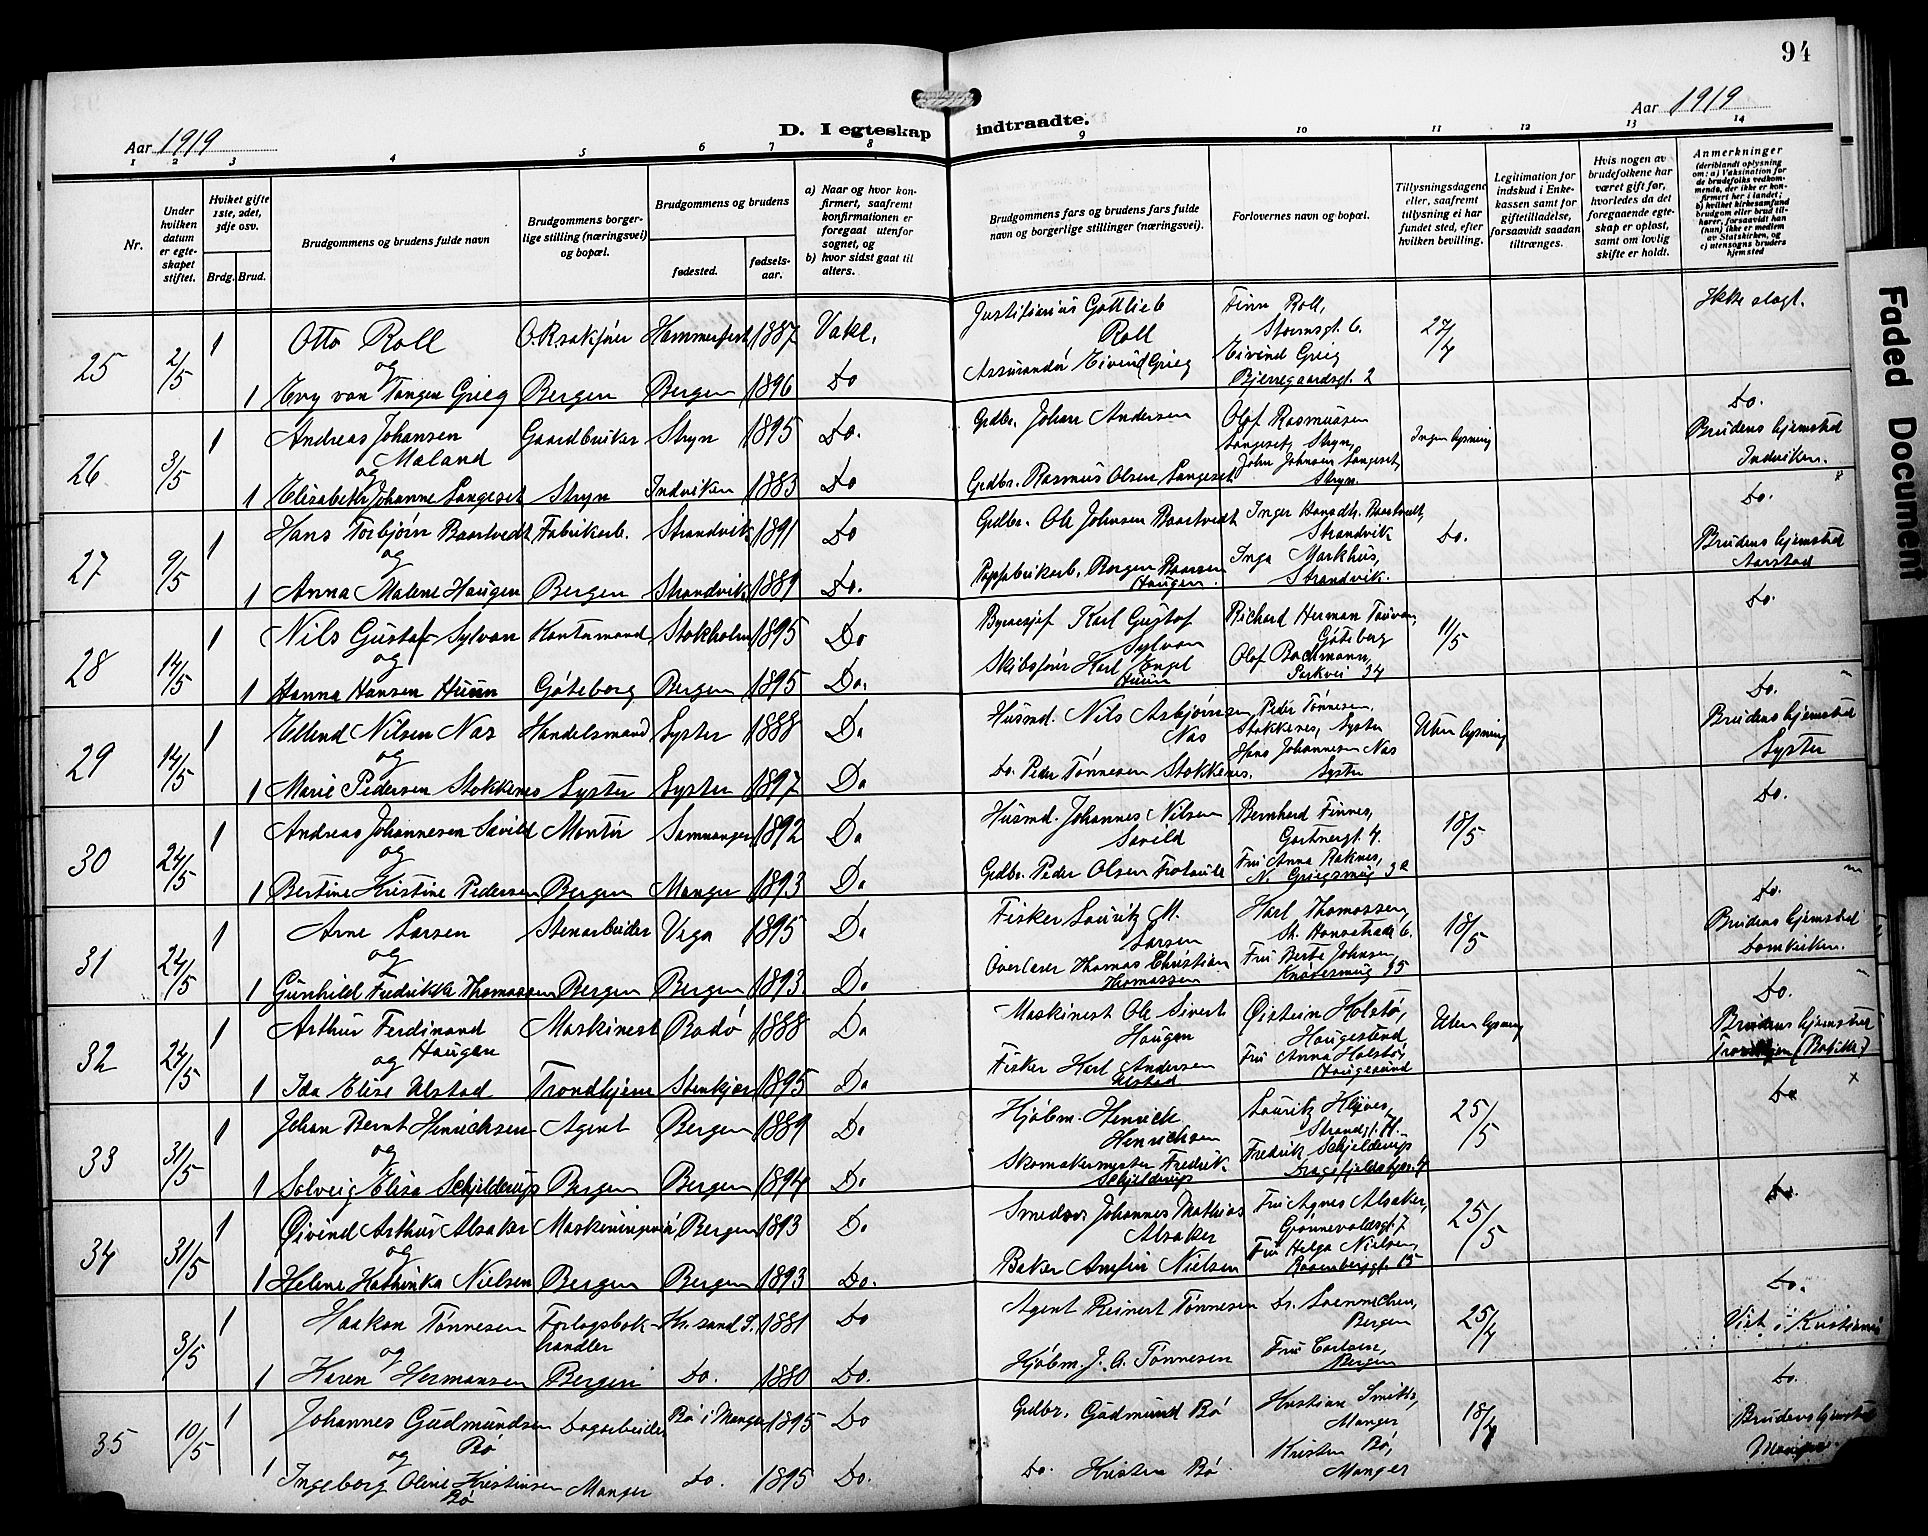 94
Aar 1919
D. I egteskap indtraadte.
Aar 1919
1 2 3 4 5 6 7 8 9 10 11 12 13 14
Nr.
Under hvilken datum er egteskapet stiftet.
Hviket gifte 1ste, 2det, 3dje osv.
Brdg. Brud.
Brudgommens og brudens fulde navn
Brudgommens borgerlige stilling (næringsvei) og bopæl.
Brudgommens og brudens
fødested.
fødselsaar.
a) Naar og hvor konfirmert, saafremt konfirmationen er foregaat utenfor sognet, og
b) hvor sidst gaat til alters.
Brudgommens fars og brudens fars fulde navn og borgerlige stillinger (næringsvei).
Forlovernes navn og bopæl.
Tillysningsdagene eller, saafremt tillysning ei har fundet sted, efter hvilken bevilling.
Legitimation for indskud i Enkekassen samt for giftetilladelse, forsaavidt saadan tiltrænges.
Hvis nogen av brudefolkene har været gift før, hvorledes da det foregaaende egteskap er opløst, samt om lovlig skifte er holdt.
Anmerkninger
(deriblandt oplysning om: a) Vaksination for de brudefolks vedkommende, der ikke er konfirmert her i landet; b) hvilket kirkesamfund brudgom eller brud tilhører, forsaavidt han (hun) ikke er medlem av Statskirken, og c) utensogns bruders hjemsted
25 2/5 1 Otto Roll O.R.sakfører Hammerfest 1887 Vakl. Justitiarius Gottlieb Roll Finn Roll, Stormsgt. 6. 27/4 Ikke slegt.
og
1 Evy von Tangen Grieg Bergen Bergen 1896 Do Assurandør Eivind Grieg Eivind Grieg Bjerregaardsgt. 2
26 3/5 1 Andreas Johansen Maland Gaardbruker Stryn 1895 Do. Grdbr. Johan Andersen Olof Rasmussen Langeset, Stryn, Ingen lysning Do. Brudens hjemsted Indviken.
og
1 Elisabeth Johanne Langeset Stryn Indviken 1883 Do Grdbr. Rasmus Olsen Langeset John Johnsen Langeset, Stryn.
27 9/5 1 Hans Torbjørn Baartvedt Fabrikarb. Strandvik 1891 Do Grdbr. Ole Johnsen Baartvedt Inger Hansdtr. Baartvedt, Strandvik Do. Do. Brudens hjemsted Aarstad
og
1 Anna Malene Haugen Bergen Strandvik 1889 Do. Papfabrikarb. Haugen Inga Markhus, Strandvik.
28 14/5 1 Nils Gustaf Sylvan Kontormand Stokholm 1895 Do Karl Gustof Sylvan Richard Herman Göteborg 11/5 Do.
og
1 Hanna Hansen Huun Göteborg Bergen 1895 Do. Skibsfører Karl Engel Huun Olof Bachmann, Parkvei 34
29 14/5 1 Ellend Nilsen Nas Handelsmand Lyster 1888 Do Husmd. Nils Asbjørnsen Nas Peder Tønnesen, Stokkenes, Lyster Uten lysning Do. Brudens hjemsted Lyster
og
1 Marie Pedersen Stokkenes Lyster Lyster 1897 Do Do. Peder Tønnesen Stokkenes. Hans Johannesen Nas Lyster
30 24/5 1 Andreas Johannesen Savild Montør Samnanger 1892 Do Husmd. Johannes Nilsen Savild Bernhard Finnes, Gartnergt. 4. 18/5 Do.
og
1 Bertine Kristine Pedersen Bergen Manger 1893 Do Grdbr. Peder Olsen Fru Anna Raknes, N. Griegsmug 3a
31 24/5 1 Arne Larsen Stenarbeider Vega 1895 Do Fisker Lauritz M. Larsen Karl Thomassen, St. Hansstræde 6. 18/5 Do. Brudens hjemsted Domkirken.
og
1 Gunhild Fredrikke Thomassen Bergen Bergen 1893 Do Overlærer Thomas Christian Thomassen Fru Berte Johnsen, Knøsesmug 35
32 24/5 1 Arthur Ferdinand Haugan Maskinest Rødø 1888 Do Maskinest Ole Sivert Haugan Øistein Holstø, Haugesund Uten lysning Do. Brudens hjemsted Trondhjem
og
1 Ida Elise Ulstad Trondhjem Stenkjær 1895 Do Fisker Karl Andersen Ulstad Fru Anna Holstø, Haugesund
33 31/5 1 Johan Bernt Henrichsen Agent Bergen 1889 Do Kjøbm. Henrich Henrichsen Lauritz Strandgt. 25/5 Do x
og
1 Solveig Elisa Schjelderup Bergen Bergen 1894 Do Skomakermester Fredrik Schjelderup Fredrik Schjelderup
34 31/5 1 Øivind Arthur Alsaker Bergen 1893 Do Smedsv. Johannes Mathias Alsaker Fru Agnes Alsaker, Grønnevoldsgt. 7 25/5 Do.
og
1 Helene Kathinka Nielsen Bergen Bergen 1893 Do. Baker Arnfin Nielsen Fru Helga Nielsen, Rosenberggt. 15
3/5 1 Haakon Tønnesen Forlagsbokhandler Kr.sand S. 1881 Do Agent Reinert Tønnesen Dr. Loennechen, Bergen 25/4 Do. Viet i Kristiania
og
1 Karen Hermansen Bergen Do. 1880 Do. Kjøbm. J. A. Tønnesen Fru Bergen
35 10/5 1 Johannes Gudmundsen Bø Dagarbeider Bø i Manger 1895 Do Grdbr. Gudmund Bø Kristian Manger 18/4 Do. Brudens hjemsted
og
1 Ingeborg Oline Kristensen Bø Manger Do. 1895 Do. Do. Kristen Bø Kristen Bø, Manger
Faded Document